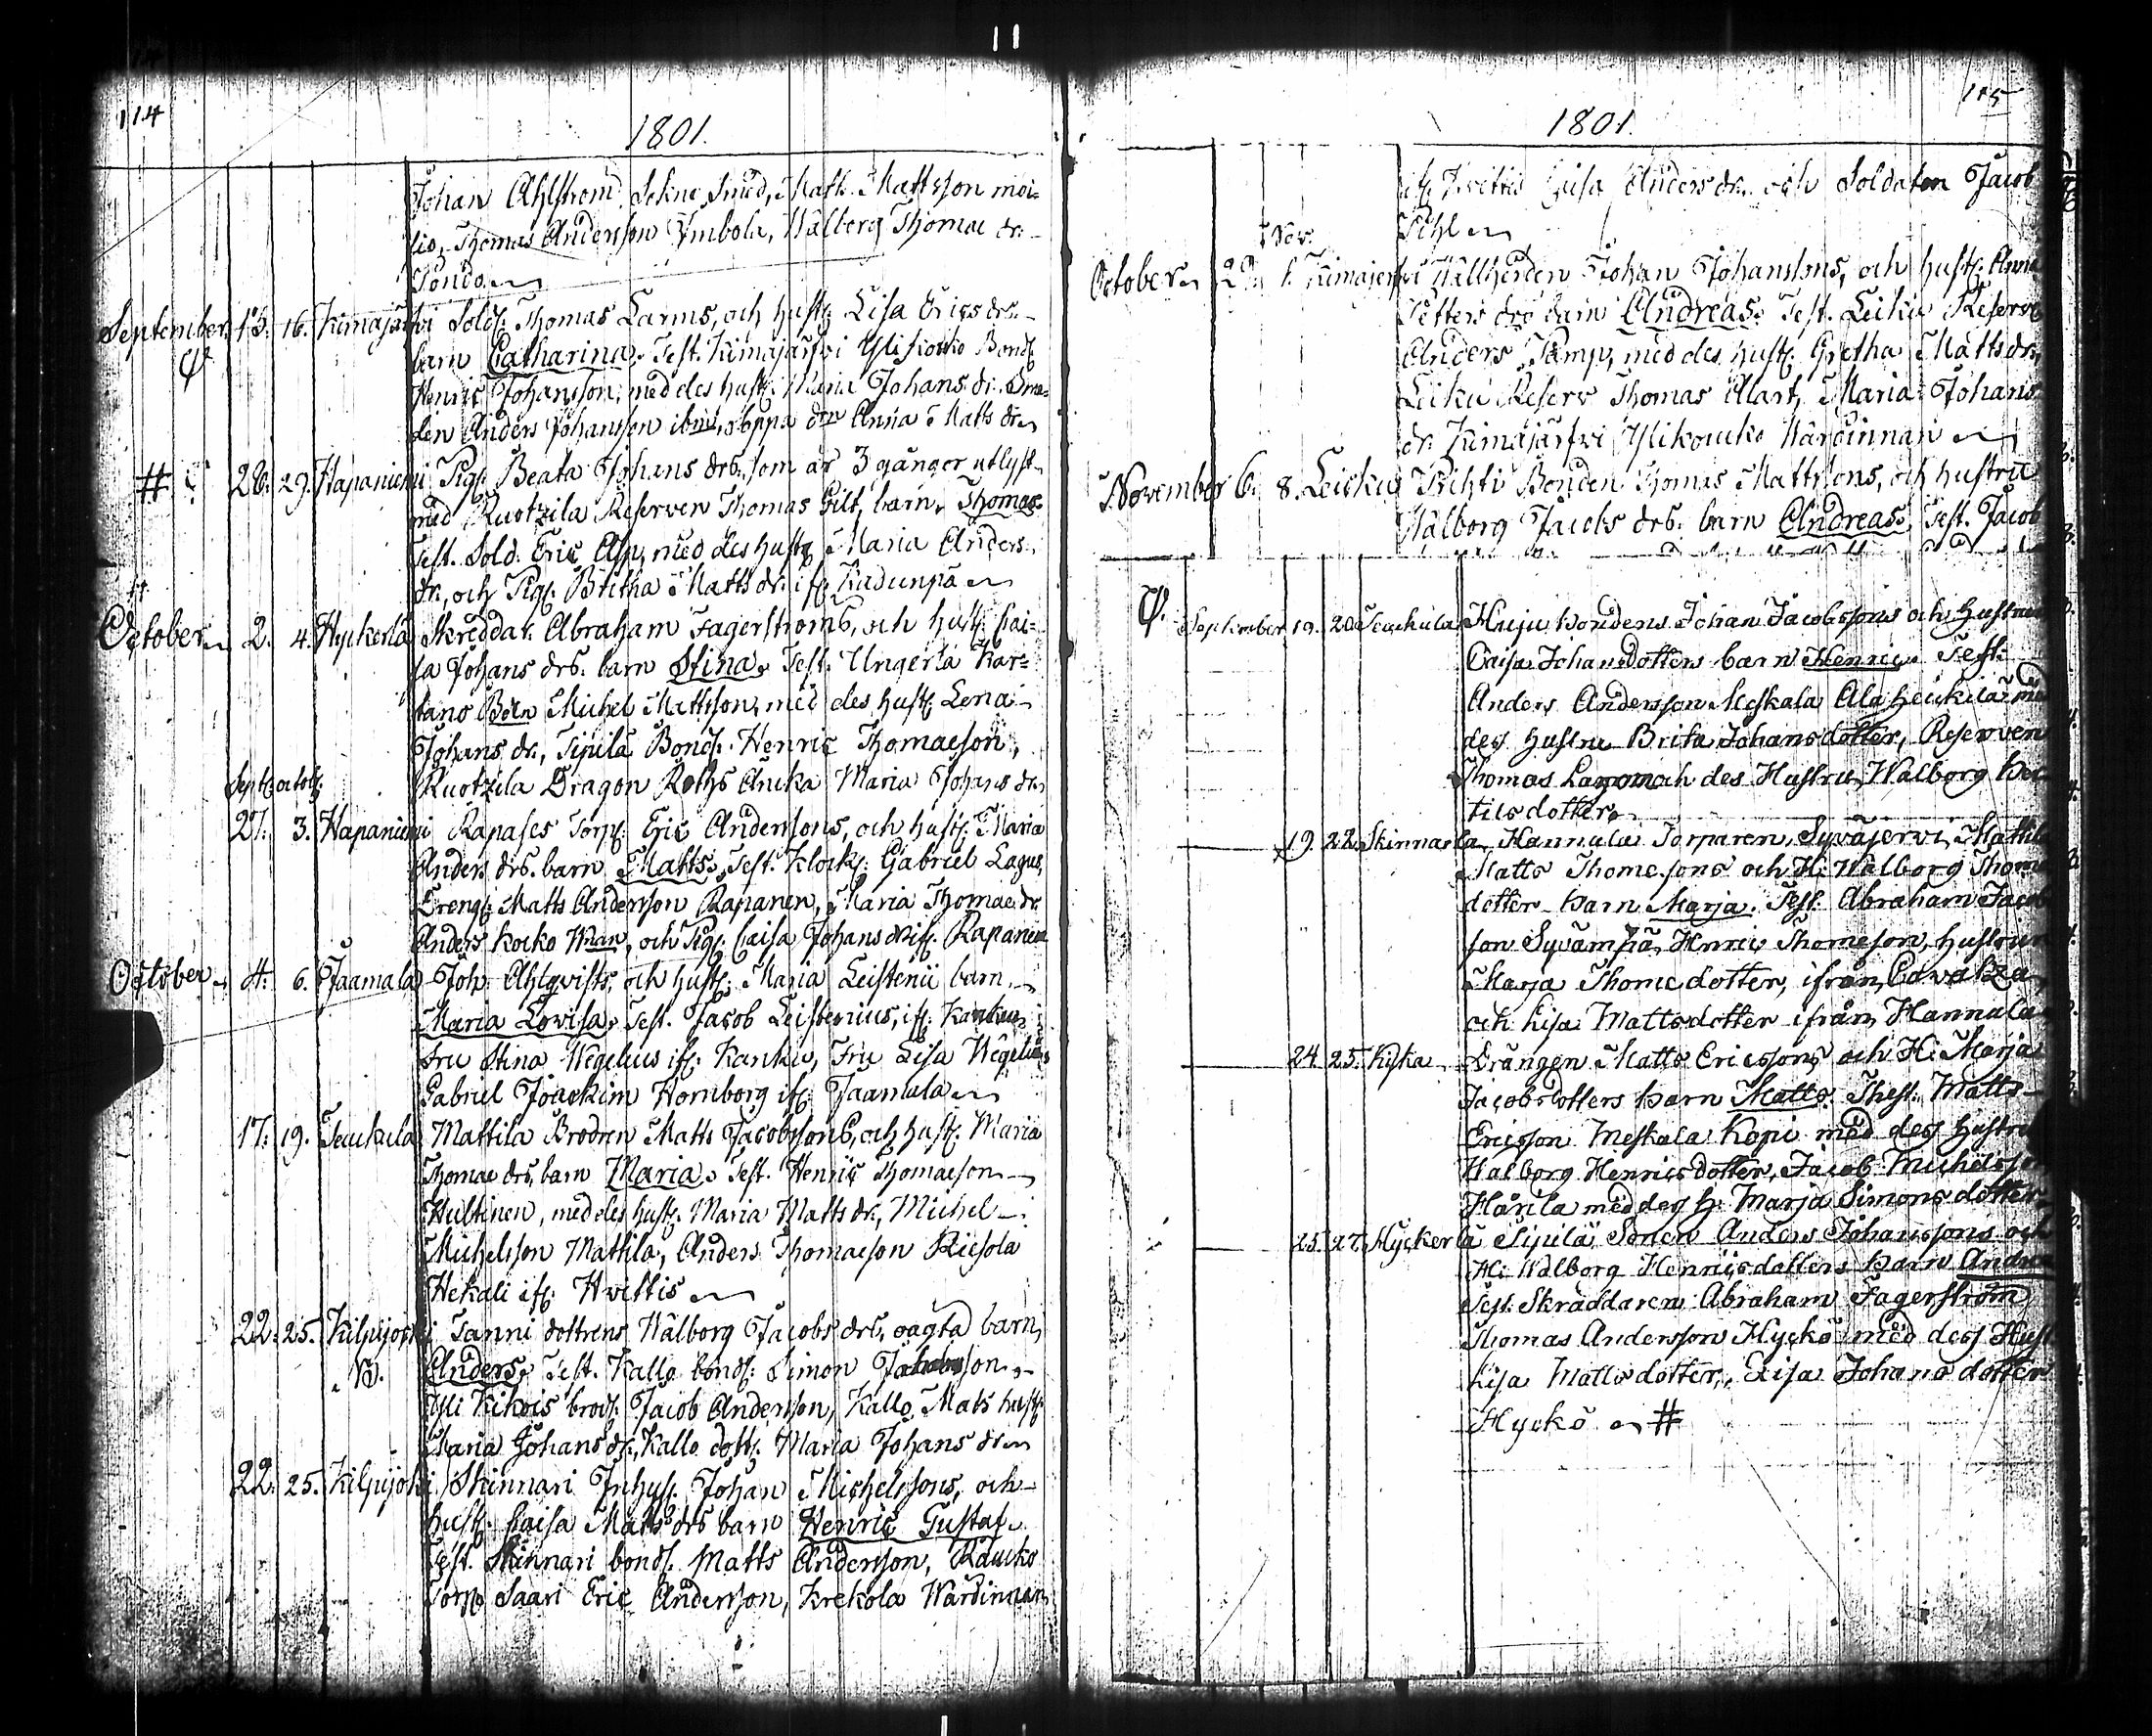 114
1801.
Johan Ahlström, Sokne Smed, Math. Mattsson moi-
sio, Thomas Andersson Ymbola, Wålborg Thomae dr.
September 13. 16. Kimajärfvi Sold. Thomas Larms, och hust. Lisa Erics drs.
barn Catharina. Test. Kimajärfvi Ylikouko Bond.
Henric Johansson, med des hust. Maria Johans dr.
den Anders Johansson ibm, Anna Matts dr.
# 26. 29. Hapaniemi Pig. Beata Johans drs. som är 3 gånger utlyst
med Ruotzila Reserven Thomas Gilt, barn, Thomas.
Test. Sold. Eric Alp, med des hust. Maria Anders
dr., och Pig. Britha Matts dr. if. Kadunpä
October 2. 4. Hyckerlä Skreddar. Abraham Fagerströms, och hust. Cai-
sa Johans drs. barn Stina. Test. Ungerlä Kar-
tano Bdn Michel Mattsson, med des hust. Lena
Johans dr., Sipilä Bond. Henric Thomaeson,
Ruotzila Dragon Roths Ancka Maria Johans dr.
Sept. octob.
27. 3. Hapaniemi Rapases Torp. Eric Anderssons, och hust. Maria
Anders drs. barn Matts. Test. Klock. Gabriel Lagus,
Dreng. Matts Andersson Rapanen, Maria Thomae dr.
Anders Kocko Wman, och Pig. Caisa Johans dr. if. Rapanen
October 4. 6. Jaamala Joh. Ahlqvists, och hust. Maria Leistenii barn
Maria Lovisa. Test. Jacob Leistenius, if. Kanku
Fru Stina Wegelius if. Kanku, Fru Lisa Wegelius
Gabriel Joackim Hornborg if. Jaamala
17. 19. Seukula Mattila Brodren Matts Jacobssons, och hust. Maria
Thomae drs. barn Maria. Test. Henric Thomaeson
Hultinen, med des hust. Maria Matts dr., Michel
Michelsson Mattila, Anders Thomaeson Riesola
Hekali if. Hvittis
22. 25. Kilpijoki Tanni dottrens Wålborg Jacobs drs. oägta barn,
Anders. Test. Kallo bond. Simon son,
Yli Kikois brod. Jacob Andersson, Kallo Mats hust.
Maria Johans dr., Kallo dott. Maria Johans dr.
22. 25. Kilpijoki Skinnari Inhys. Johan Michelssons, och
hust. Caisa Matts drs barn Henric Gustaf.
Test. Skinnari bond. Matts Andersson, Raucko
Torp. Saari Eric Andersson, Krekola Wärdinnan
115
1801.
if. Hvittis Caisa Anders dr. och Soldaten Jacob
Pihl
Nov.
October 29. 1. Kimajerfvi Wallherden Johan Johanssons, och hust. Anna
Petters drs barn Andreas. Test. Leiku Reserv
Anders Kämp, med des hust. Gretha Matts dr.
Leiku Reserv Thomas Alart, Maria Johans
dr. Kimajärfvi Ylikoucko Wärdinnan
November 6. 8. Leicku Prihti Bonden Thomas Mattssons, och hustru
Wålborg Jacobs drs. barn Andreas, Test. Jacob
September 19. 20. Seuckula Huju bondens Johan Jacobssons och Hustru
Caisa Johansdotters barn Henric. Test.
Anders Andersson Meskala Ala heickilä med
des Hustru Brita Johansdotter, Reserven
Thomas des Hustru Walborg Ber-
tilsdotter
19. 22. Skinnarla Hannula Torparen, Syväjervi Mattila
Matts Thomessons och H. Walborg Thome
dotter barn Marja. Test. Abraham Jacob
son Syvämpä, Henric Thomeson, hustrun
Marja Thomedotter, ifrån
och Lisa Mattsdotter ifrån Hannula
24. 25. Kiska Drängen Matts Ericssons och H. Marja
Jacobsdotters barn Matts. Thest. Matts
Ericsson Meskala Kopi med des hustru
Walborg Henricsdotter, Jacob Michelsson
Hårila med des H. Marja Simonsdotter
25. 27. Hyckerlä Sipilä Sonen Anders Johanssons och
H. Walborg Henricsdotters barn Andrea
Test. Skräddaren Abraham Fagerström
Thomas Andersson Hyckö med des Hust
Lisa Mattsdotter, Lisa Johansdotter
Hyckö #